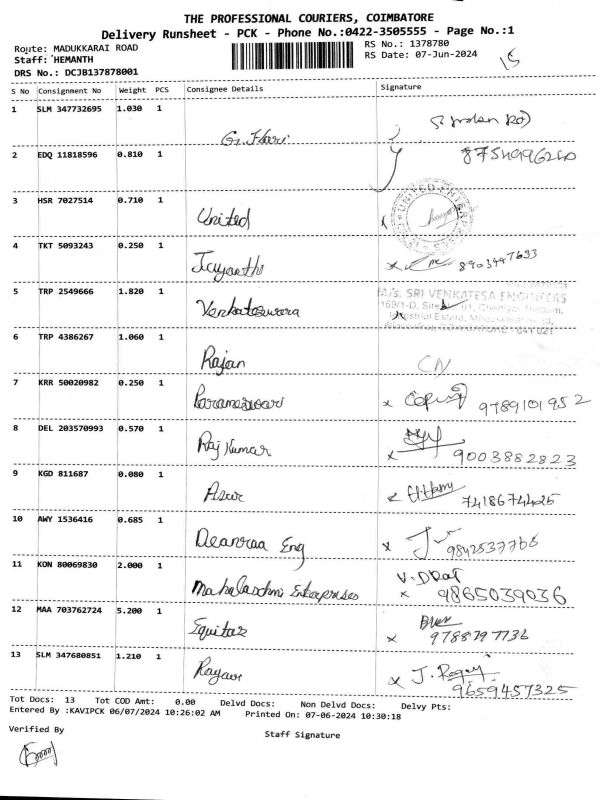 THE PROFESSIONAL COURIERS, COIMBATORE
Delivery Runsheet - PCK - Phone No.:0422-3505555 - Page No.:1
Route: MADUKKARAI ROAD
RS No.: 1378780
Staff: HEMANTH
RS Date: 07-Jun-2024
15
DRS No.: DCJB137878001
S No Consignment No Weight PCS Consignee Details Signature
1 SLM 347732695 1.030 1 G. Hari
2 EDQ 11818596 0.810 1
3 HSR 7027514 0.710 1 United
4 TKT 5093243 0.250 1 Jayanthi
5 TRP 2549666 1.820 1 Venkateswara
M/s. SRI VENKATESA ENGINEERS
6 TRP 4386267 1.060 1 Rajan CN
7 KRR 50020982 0.250 1 Parameswari x 9789101952
8 DEL 203570993 0.570 1 Raj Kumar x 9003882823
9 KGD 811687 0.080 1 7418674425
10 AWY 1536416 0.685 1 Eng x 9842537766
11 KON 80069830 2.000 1 Mahalaxhmi Enterprises x 9865039036
12 MAA 703762724 5.200 1 Equitas x 9788797736
13 SLM 347680851 1.210 1 x J. 9659457325
Tot Docs: 13 Tot COD Amt: 0.00 Delvd Docs: Non Delvd Docs: Delvy Pts:
Entered By :KAVIPCK 06/07/2024 10:26:02 AM Printed On: 07-06-2024 10:30:18
Verified By
Staff Signature